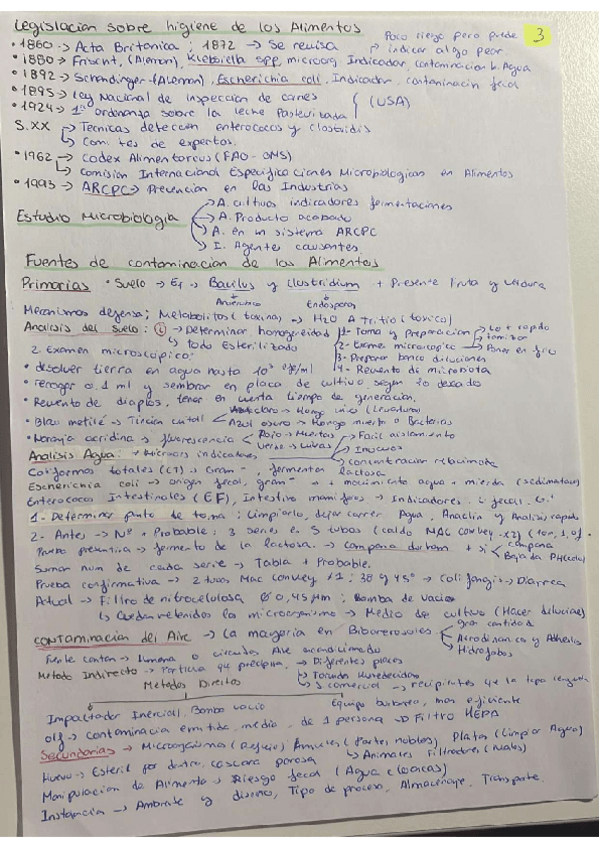 Legislacion sobre higiene de los Alimentos
Poco riego pero puede
indicar algo peor.
3
• 1860 -> Acta Britanica ; 1872 -> Se revisa
• 1880 -> (Aleman), Klebsiella spp, microorg Indicador, contaminacion Agua
• 1892 -> (Aleman), Escherichia coli, Indicador, contaminacion fecal
• 1895 -> Ley Nacional de Inspeccion de carnes
(USA)
• 1924 -> 1ª ordenanza sobre la leche Pasteurizada
S.XX -> Tecnicas deteccion enterococos y clostridis
-> Comites de expertos.
• 1962 -> Codex Alimentareus (FAO - OMS)
-> Comision Internacional Especificaciones Microbiologicas en Alimentos
• 1993 -> ARCPC -> Prevencion en las Industrias
Estudio Microbiologia
-> A. cultivos indicadores fermentaciones
-> A. Producto acabado
-> A. en un sistema ARCPC
-> I. Agentes causantes
Fuentes de contaminacion de los Alimentos
Primarias • Suelo -> Ej -> Bacilus y clostridium + Presente fruta y verdura
Endospora
Mecanismos defensa; Metabolitos (toxina) -> H2O A Tritio (toxico)
Analisis del suelo: -> Determinar homogeneidad
-> todo esterilizado
1- Toma y Preparacion
-> Lo + rapido
-> tamizar
2- Examen microscopico -> Poner en frio
3- Preparar banco diluciones
4- Recuento di microbiota
2. Examen microscopico
• disolver tierra en agua hasta
• recoger 0.1 ml y sembrar en placa de cultivo segun lo deseado
• Recuento de tener en cuenta tiempo de generacion.
• Blau metilé -> Tincion
Azul claro -> Hongo vivo (Levaduras)
Azul oscuro -> Hongo muerto o Bacterias
• Naranja acridina -> fluorescencia
Rojo -> Muertos
Verde -> vivas
Analisis Agua: -> Microorg indicadores
-> Facil aislamiento
-> Inocuos
-> concentracion relacionada
Coliformes totales (CT) -> Gram -, fermentan lactosa
Escherichia coli -> origen fecal, gram - + movimiento agua + mierda (sedimentacion)
Enterococos Intestinales (EF), Intestino mamiferos -> Indicadores fecal
1- Determinar punto de toma: Limpiarlo, dejar correr Agua, y Analisis rapido
2- Antes -> Nº + Probable: 3 series en 5 tubos (caldo MAC conkey x2)
Prueba presuntiva -> fermento de la lactosa -> campana durham + si
campana
Bajada PH
Sumar num de cada serie -> Tabla + Probable.
Prueba confirmativa -> 2 tubos Mac conkey x1; 38 y 45° -> coli -> Diarrea
Actual -> Filtro de nitrocelulosa Ø 0,45 µm; Bomba de vacio
-> Quedan retenidos la microorganismo -> Medio de cultivo (Hacer diluciones)
contaminacion del Aire -> La mayoria en Bioaerosoles
-> gran cantidad
-> Aerodinamicos y Adhesibles
-> Hidrofobos
Fuente contam -> Humana o circuitos Aire acondicionado
Metodo Indirecto -> Particula que precipita -> Diferentes placas
-> Torunda Humedecidas
-> comercial -> recipientes
Metodos Directos
Impactador Inercial, Bomba vacio
Equipo burbujeo, mas eficiente
olf -> contaminacia emitida, media, de 1 persona -> Filtro HEPA
Secundarias -> Microorganismos (Refugio) Animales (Partes nobles) Platas (limpiar Agua)
-> Animales Filtradores
Huevo -> Esteril por dentro, cascara porosa
Manipulacion de Alimento -> Riesgo fecal (Agua cloacas)
-> Ambiente y diseños, Tipo de proceso, Almacenaje, Transporte.